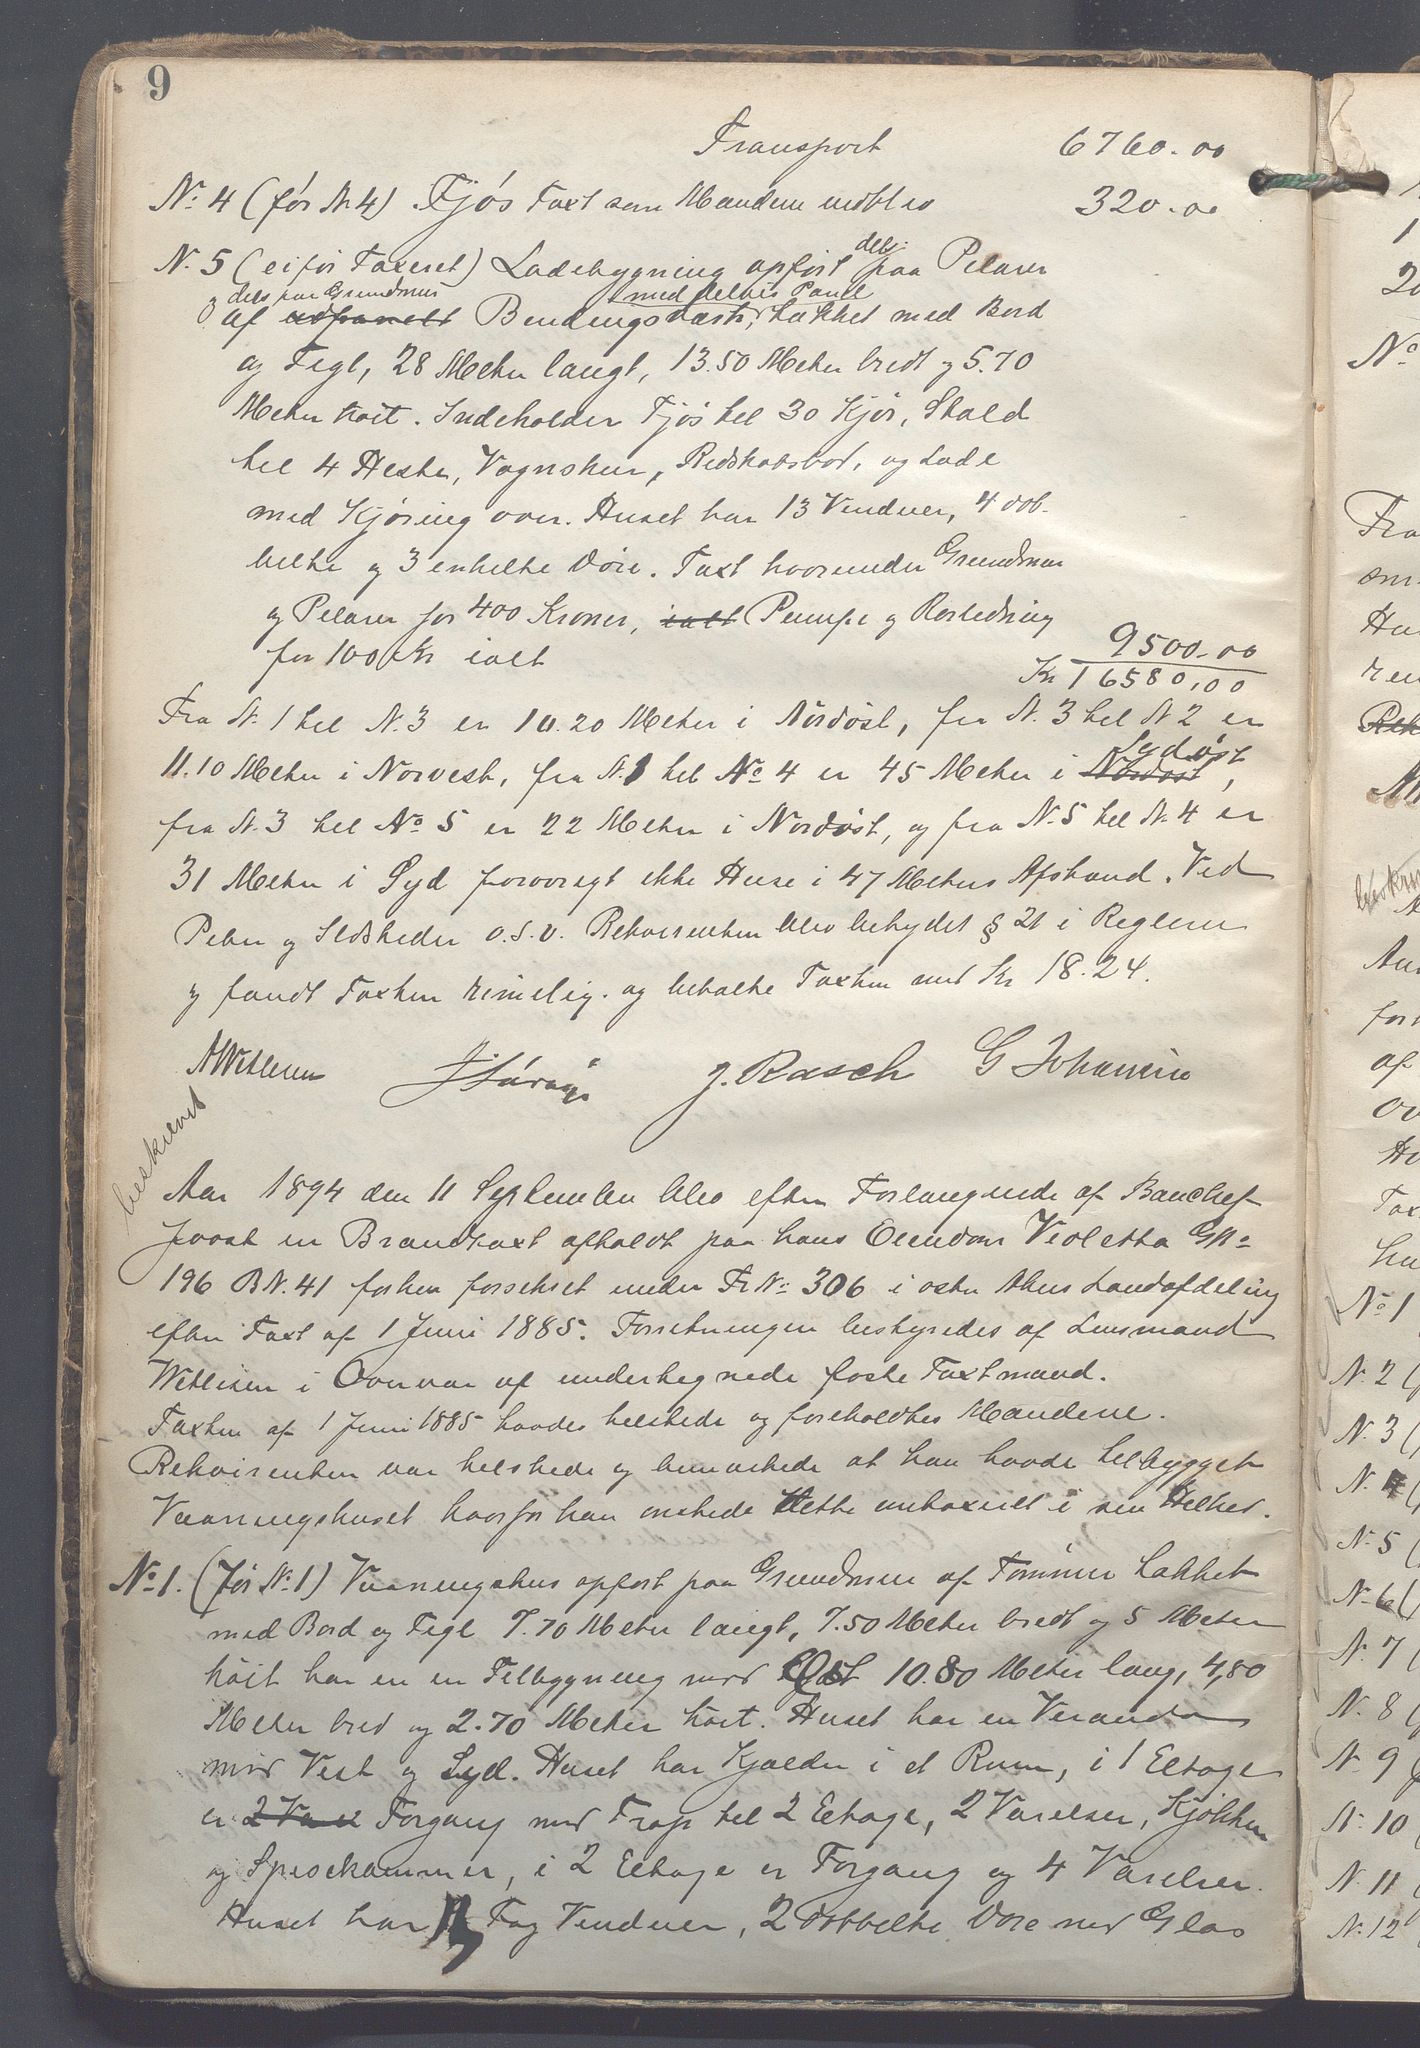 9
Transport 6760.00
No 4 (før N. 4) Fjós Taxt som Mandene vedblev 320.00
N. 5 (ei før Taxeret) Ladebygning opført dels paa Pelarer
og dels paa Grundmur
af udpanelt Bendingsværk, med delvis Panel takket med Bord
og Tegl, 28 Meter langt, 13.50 Meter bredt og 5.70
Meter høit. Indeholder Fjøs til 30 Kjør, Stald
til 4 Heste, Vognskur, Redskabsbod, og Lade
med Kjøring over. Huset har 13 Vinduer, 4 dob-
belte og 3 enkelte Døre. Taxt hvorunder Grundmur
og Pelarer for 400 Kroner, ialt Pumpe og Rørledning
for 100 Kr ialt 9500.00
Kr 16580,00
Fra N. 1 til N. 3 er 10.20 Meter i Nordøst, fra N. 3 til N 2 er
11.10 Meter i Norvest, fra N. 1 til No 4 er 45 Meter i Nordøst Sydøst,
fra N. 3 til No 5 er 22 Meter i Nordøst, og fra N. 5 til N. 4 er
31 Meter i Syd forøvrigt ikke Huse i 47 Meters Afstand. Ved
Piber og Ildsteder o.s.v. Rekvirenten blev betydet § 21 i Reglerne
og fandt Taxten rimelig. og betalte Taxten med Kr 18.24.
J. Rasch G Johannesen
beskrevet
Aar 1894 den 11 September blev efter Forlangende af Banchef
Joost en Brandtaxt afholdt paa hans Eiendom Violetta GNo
196 BN. 41 forhen forsikret under FrNo 306 i østre Akers Landafdeling
efter Taxt af 1 Juni 1885. Forretningen bestyredes af Lensmand
Wetlesen i Overvær af undertegnede faste Taxtmænd.
Taxten af 1 Juni 1885 havdes tilstede og foreholdtes Mandene.
Rekvirenten var tilstede og bemærkede at han havde tilbygget
Vaaningshuset hvorfor han ønskede dette omtaxeret i sin Helhed.
No 1. (før No 1) Vaaningshus opført paa Grundmur af Tømmer takket
med Bord og Tegl 7.70 Meter langt, 7.50 Meter bredt og 5 Meter
høit har en en Tilbygning mod Øst 10.80 Meter lang, 4,80
Meter bred og 2.70 Meter høit. Huset har en Veranda
mod Vest og Syd. Huset har Kjælder i et Rum, i 1 Etage
er 2 Væ Forgang med Trap til 2 Etage, 2 Værelser, Kjøkken
og Spisekammer, i 2 Etage er Forgang og 4 Værelser.
Huset har Fag Vinduer, 2 dobbelte Døre med Glas
No
Fra
No 1
N. 2
N. 3
N. 4
N. 5
No 6
N. 7
N. 8
N. 9
N. 10
N. 11
N. 12